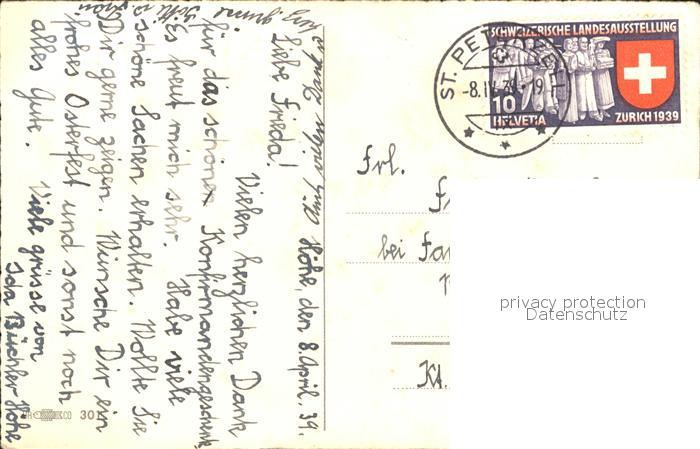 Höhe, den 8. April. 39.
Liebe Frieda!
Vielen herzlichen Dank
für das schönen Konfirmandengeschenk
Es freut mich sehr. Habe viele
schöne Sachen erhalten. Wollte Sie
Dir gerne zeigen. Wünsche Dir ein
frohes Osterfest und sonst noch
alles Gute. Viele grüsse von
Ida Büchler Höhe
301
ST. PETERZELL
-8.IV.39.-19
SCHWEIZERISCHE LANDESAUSSTELLUNG
10
HELVETIA
ZURICH 1939
Frl.
bei Fa
Kt.
privacy protection
Datenschutz